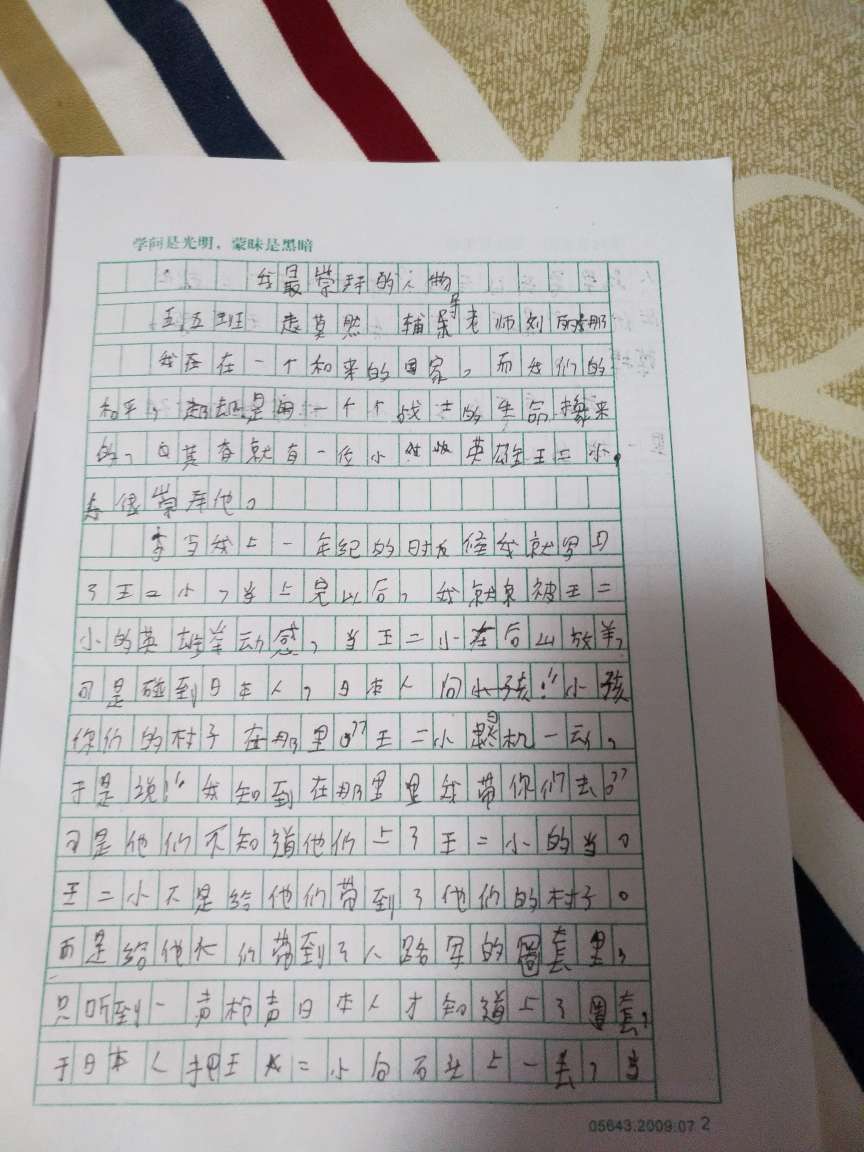 学问是光明，蒙昧是黑暗
我最崇拜的人物
五五班 莫然 辅导老师刘
我在一个和来的国家，而我们的
和平，却是用一个个战士的生命换来
的，其就有一位小英雄王二小，
我很崇拜他。
当我上一年纪的时候我就学习
了王二小，当上完以后，我就被王二
小的英雄举动感，当王二小在后山放羊，
可是碰到日本人，日本人问：“小孩
你们的村子在那里。”王二小机一动，
于是说：“我知到在那里我带你们去。”
可是他们不知道他们上了王二小的当。
王二小不是给他们带到了他们的村子。
而是给他们带到了八路军的圈套里，
只听到一声枪声日本人才知道上了圈套，
于日本人把王二小向石头上一丢，当
05643.2009.07 2